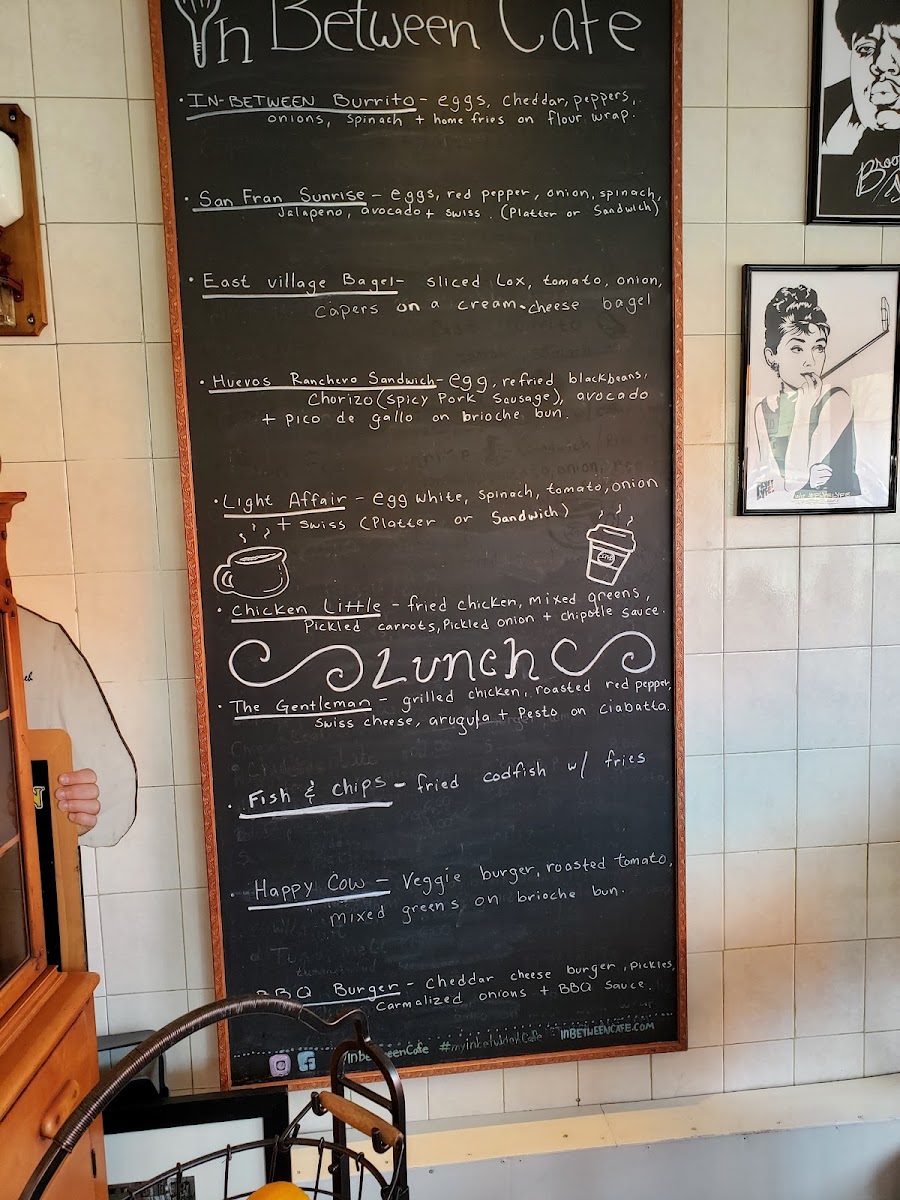 In Between Cafe
• IN-BETWEEN Burrito - eggs, cheddar, peppers,
onions, spinach + home fries on flour wrap.
• San Fran Sunrise - eggs, red pepper, onion, spinach,
Jalapeno, avocado + swiss. (Platter or Sandwich)
• East village Bagel - sliced Lox, tomato, onion,
capers on a cream-cheese bagel
• Huevos Ranchero Sandwich - egg, refried blackbeans,
Chorizo (spicy Pork Sausage), avocado
+ pico de gallo on brioche bun.
• Light Affair - egg white, spinach, tomato, onion
+ swiss (Platter or Sandwich)
• Chicken Little - fried chicken, mixed greens,
Pickled carrots, Pickled onion + chipotle sauce.
Lunch
• The Gentleman - grilled chicken, roasted red pepper,
Swiss cheese, arugula + Pesto on ciabatta.
• Fish & chips - fried codfish w/ fries
• Happy Cow - Veggie burger, roasted tomato,
mixed greens on brioche bun.
BBQ Burger - cheddar cheese burger, Pickles,
Carmalized onions + BBQ Sauce.
/InbetweenCafe INBETWEENCAFE.COM